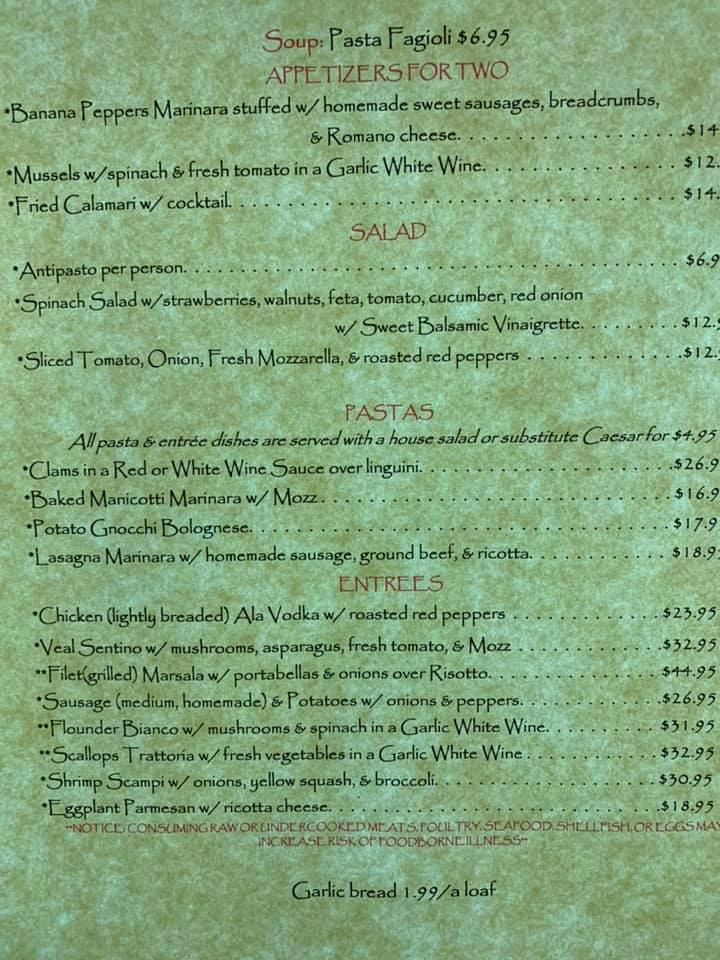 Soup: Pasta Fagioli $6.95
APPETIZERS FOR TWO
*Banana Peppers Marinara stuffed w/ homemade sweet sausages, breadcrumbs,
& Romano cheese. . . . . . . . . . . . . . . . . . . . . . . .$14
*Mussels w/spinach & fresh tomato in a Garlic White Wine. . . . . . . . . . . . . . . . . . . $12.
*Fried Calamari w/ cocktail. . . . . . . . . . . . . . . . . . . . . . . . . . . . . . . . . . . . . . . . . $14.
SALAD
*Antipasto per person. . . . . . . . . . . . . . . . . . . . . . . . . . . . . . . . . . . . . . . . . . . . $6.9
*Spinach Salad w/strawberries, walnuts, feta, tomato, cucumber, red onion
w/ Sweet Balsamic Vinaigrette. . . . . . . . .$12.9
*Sliced Tomato, Onion, Fresh Mozzarella, & roasted red peppers . . . . . . . . . . . . . .$12.
PASTAS
All pasta & entrée dishes are served with a house salad or substitute Caesar for $4.95
*Clams in a Red or White Wine Sauce over linguini. . . . . . . . . . . . . . . . . . . . . . .$26.9
*Baked Manicotti Marinara w/ Mozz . . . . . . . . . . . . . . . . . . . . . . . . . . . . . . . . $16.9
*Potato Gnocchi Bolognese. . . . . . . . . . . . . . . . . . . . . . . . . . . . . . . . . . . . . . . $17.9
*Lasagna Marinara w/ homemade sausage, ground beef, & ricotta. . . . . . . . . . . . $18.95
ENTREES
*Chicken (lightly breaded) Ala Vodka w/ roasted red peppers . . . . . . . . . . . . . .$23.95
*Veal Sentino w/ mushrooms, asparagus, fresh tomato, & Mozz . . . . . . . . . . . . .$32.95
**Filet(grilled) Marsala w/ portabellas & onions over Risotto. . . . . . . . . . . . . . . . $44.95
*Sausage (medium, homemade) & Potatoes w/ onions & peppers. . . . . . . . . . . . .$26.95
**Flounder Bianco w/ mushrooms & spinach in a Garlic White Wine. . . . . . . . . . . $31.95
**Scallops Trattoria w/ fresh vegetables in a Garlic White Wine . . . . . . . . . . . . . $32.95
*Shrimp Scampi w/ onions, yellow squash, & broccoli. . . . . . . . . . . . . . . . . . . . .$30.95
*Eggplant Parmesan w/ ricotta cheese. . . . . . . . . . . . . . . . . . . . . . . . . . . . . . .$18.95
**NOTICE: CONSUMING RAW OR UNDERCOOKED MEATS, POULTRY, SEAFOOD, SHELLFISH, OR EGGS MAY
INCREASE RISK OF FOODBORNE ILLNESS**
Garlic bread 1.99/a loaf